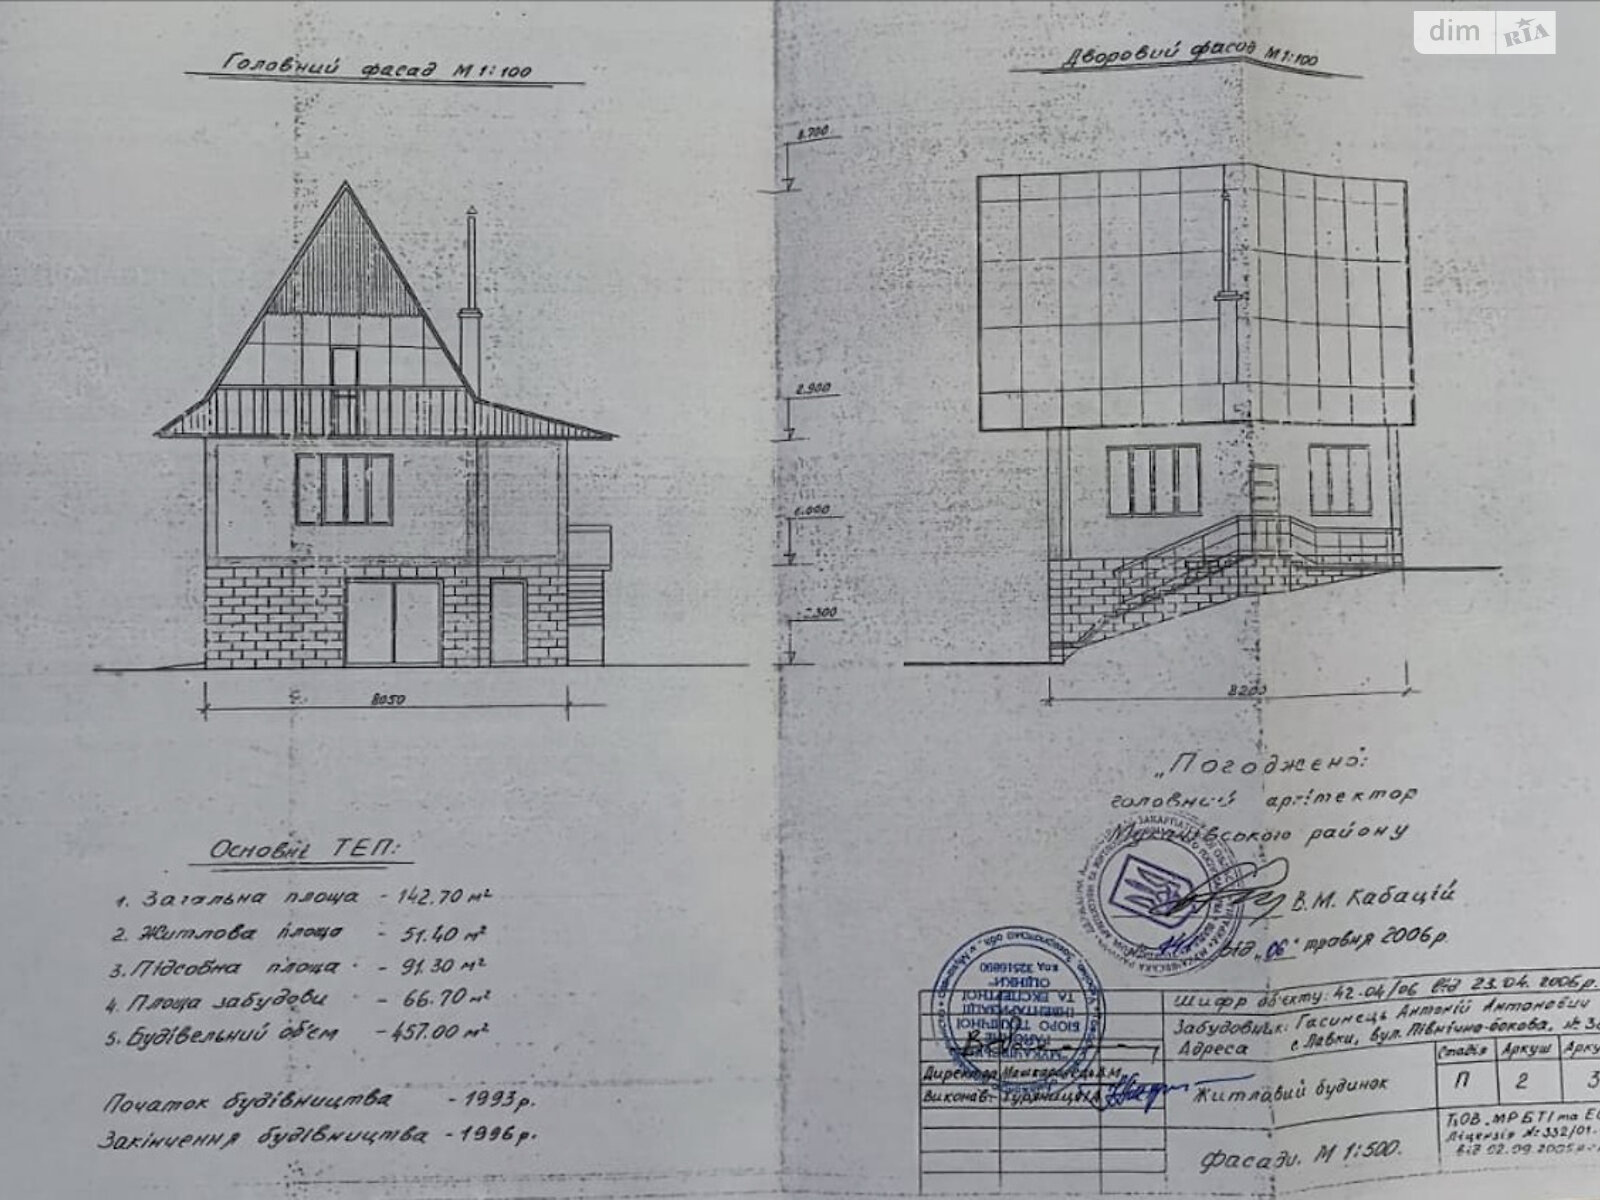 dim RIA
Головний фасад М 1:100
Дворовий фасад М 1:100
8.700
2.900
-2.300
8050
8200
Основні ТЕП:
1. Загальна площа - 142.70 м²
2. Житлова площа - 51.40 м²
3. Підсобна площа - 91.30 м²
4. Площа забудови - 66.70 м²
5. Будівельний об'єм - 457.00 м²
Початок будівництва - 1993р.
Закінчення будівництва - 1996р.
„Погоджено:
головний архітектор
Мукачівського району
В.М. Кабацій
від „06" травня 2006р.
Шифр об'єкту: 42-04/06 від 23.04.2006р.
Забудовник: Гасинець Антоній Антонович
Адреса с Лавки, вул. Північно-бокова, №
Стадія Аркуш
Директор Машкаринець В.М.
Виконав:
Житловий будинок
П 2 3
ТзОВ „МР БТІ та
Ліцензія № 332/01-
від 02.09.2005р.
Фасади. М 1:500.
код 32516890
БЮРО ТЕХНІЧНОЇ
ІНВЕНТАРИЗАЦІЇ
ТА ЕКСПЕРТНОЇ
ОЦІНКИ"